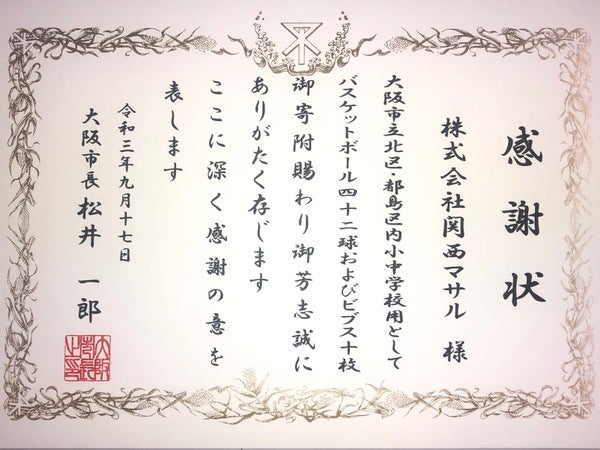 感謝状
株式会社関西マサル 様
大阪市立北区・都島区内小中学校用として
バスケットボール四十二球およびビブス十枚
御寄附賜わり御芳志誠に
ありがたく存じます
ここに深く感謝の意を
表します
令和三年九月十七日
大阪市長 松井 一郎